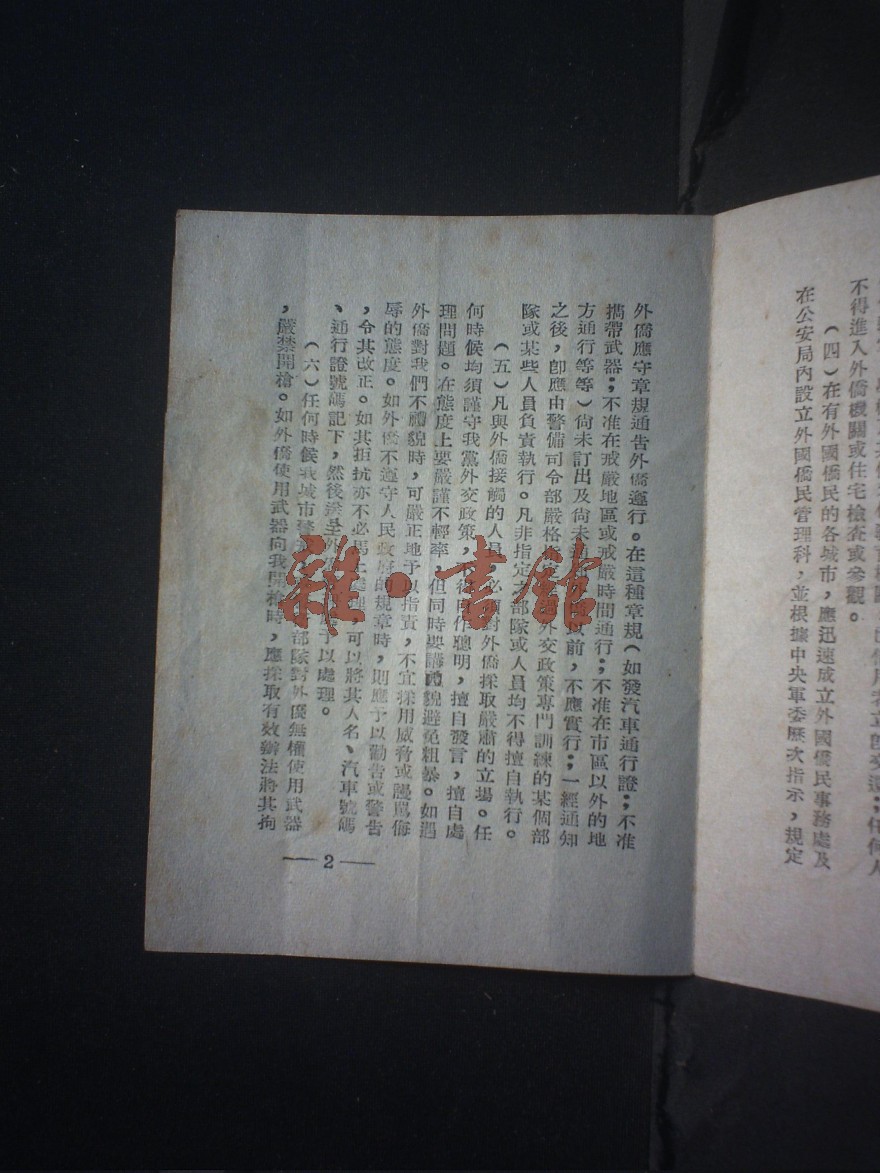 不得進入外僑機關或住宅檢查或參觀。
(四)在有外國僑民的各城市,應迅速成立外國僑民事務處及
在公安局內設立外國僑民管理科,並根據中央軍委歷次指示,規定
外僑應守章規通告外僑遵行。在這種章規(如發汽車通行證;不准
攜帶武器;不准在戒嚴地區或戒嚴時間通行;不准在市區以外的地
方通行等等)尚未訂出及尚未以前,不應實行;一經通知
之後,卽應由警備司令部嚴格外交政策專門訓練的某個部
隊或某些人員負責執行。凡非指定之部隊或人員均不得擅自執行。
(五)凡與外僑接觸的人員,必須對外僑採取嚴肅的立場。任
何時候均須謹守我黨外交政策,自作聰明,擅自發言,擅自處
理問題。在態度上要嚴謹不輕率,但同時要講禮貌避免粗暴。如遇
外僑對我們不禮貌時,可嚴正地予以指責,不宜採用威脅或謾罵侮
辱的態度。如外僑不遵守人民政府的規章時,則應予以勸告或警告
,令其改正。如其拒抗亦不必馬上處理,可以將其人名、汽車號碼
、通行證號碼記下,然後送至外予以處理。
(六)任何時候我城市警部隊對外僑無權使用武器
,嚴禁開槍。如外僑使用武器向我開槍時,應採取有效辦法將其拘
—2—
雜·書館